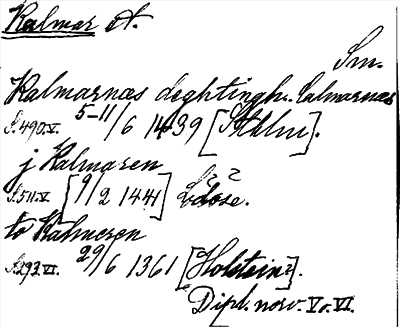 Kalmar st.
Sm.
Kalmarnas deghtingh. Calmarnas
S.490.V. 5-11/6 1439 [Sthlm].
j Kalmaren
S.511.V. [9/2 1441] Lödöse.
to Kalmeren
S.293.VI. 29/6 1361 [Holstein?].
Dipl. norv. V o. VI.